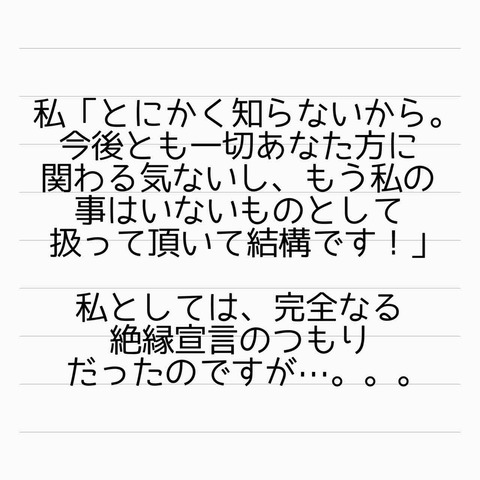 私「とにかく知らないから。
今後とも一切あなた方に
関わる気ないし、もう私の
事はいないものとして
扱って頂いて結構です！」
私としては、完全なる
絶縁宣言のつもり
だったのですが…。。。